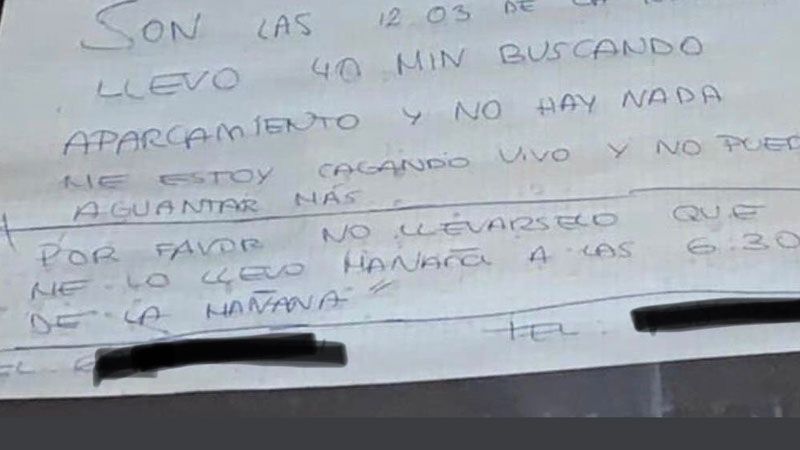 SON LAS 12 03 DE LA
LLEVO 40 MIN BUSCANDO
APARCAMIENTO Y NO HAY NADA
ME ESTOY CAGANDO VIVO Y NO PUED
AGUANTAR MÁS.
POR FAVOR NO LLEVARSELO QUE
ME LO LLEVO MAÑANA A LAS 6.30
DE LA MAÑANA"
TEL: